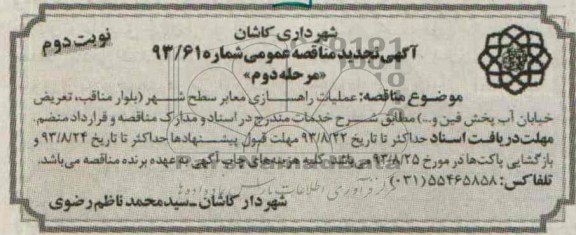 شهرداری کاشان
نوبت دوم
آگهی تجدید مناقصه عمومی شماره ۹۳/۶۱
«مرحله دوم»
موضوع مناقصه: عملیات راهسازی معابر سطح شهر (بلوار مناقب، تعریض
خیابان آب پخش فین و...) مطابق شرح خدمات مندرج در اسناد و مدارک مناقصه و قرارداد منضم.
مهلت دریافت اسناد حداکثر تا تاریخ ۹۳/۸/۲۲ مهلت قبول پیشنهادها حداکثر تا تاریخ ۹۳/۸/۲۴ و
بازگشایی پاکت‌ها در مورخ ۹۳/۸/۲۵ می‌باشد. کلیه هزینه‌های چاپ آگهی به عهده برنده مناقصه می‌باشد.
تلفاکس: ۵۵۴۶۵۸۵۸ (۰۳۱)
شهردار کاشان ـ سیدمحمد ناظم رضوی